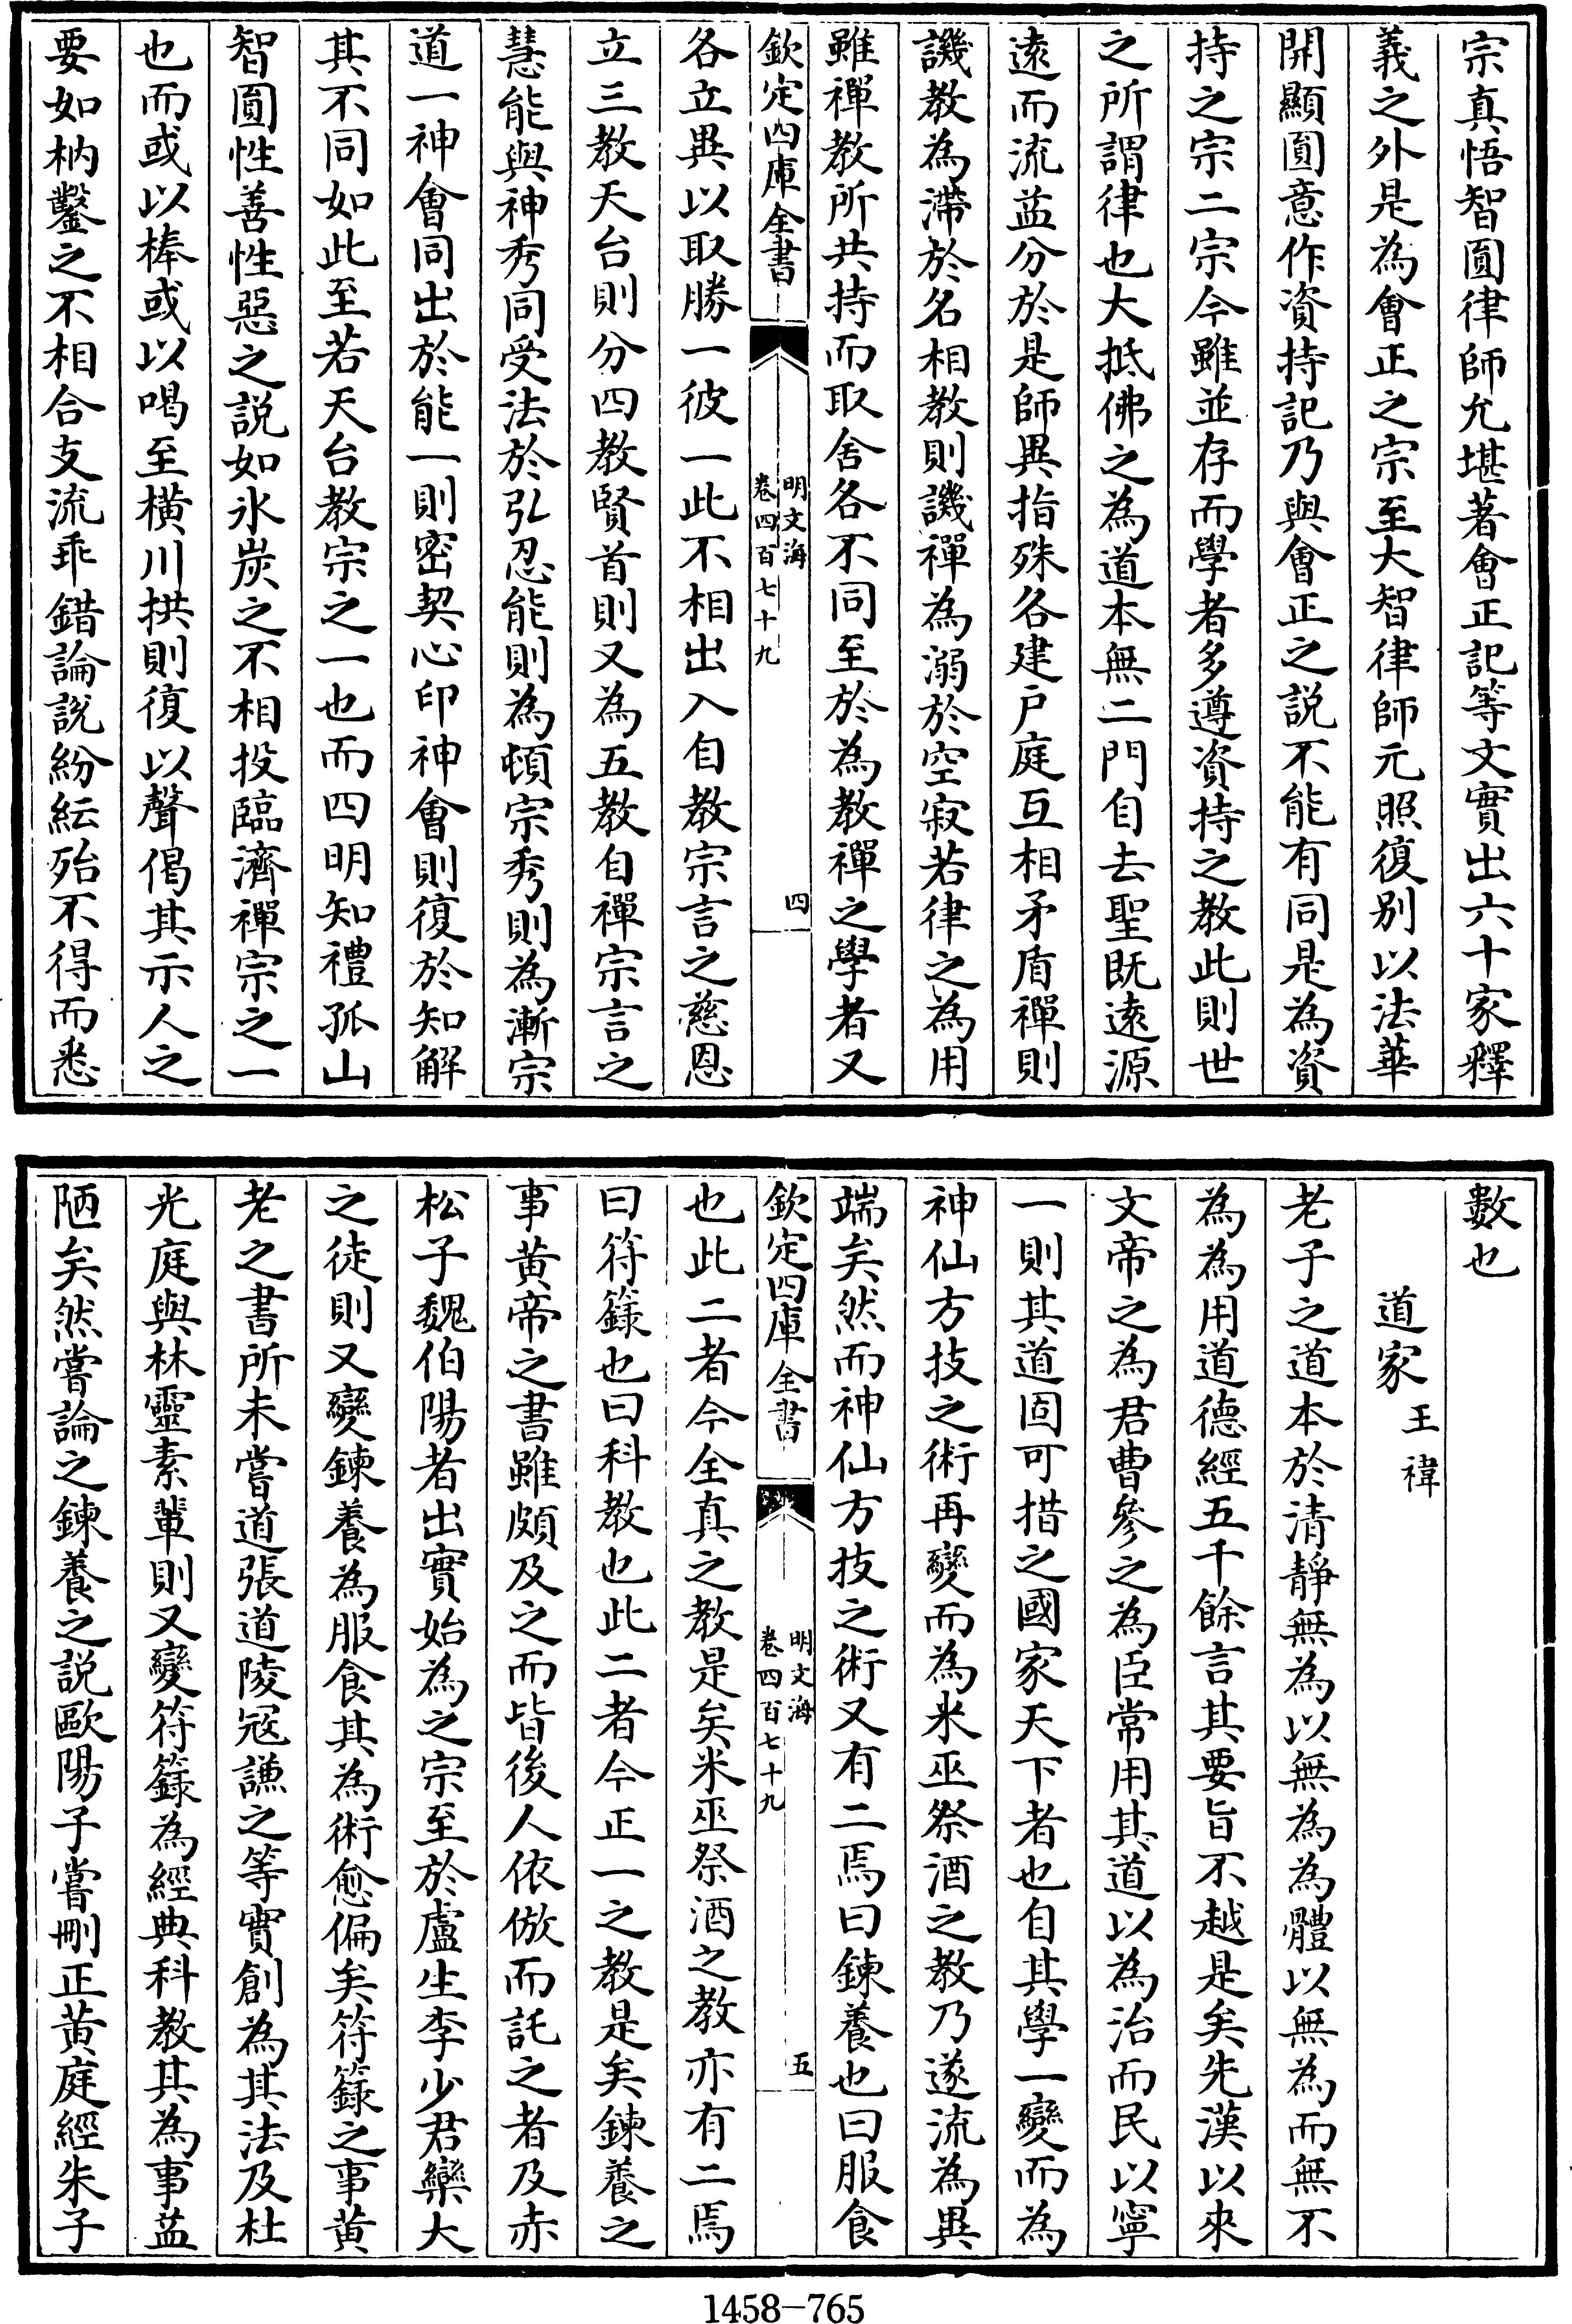 宗真悟智圓律師允堪著會正記等文實出六十家釋
義之外是為會正之宗至大智律師元照復别以法華
開顯圓意作資持記乃與會正之説不能有同是為資
持之宗二宗今雖並存而學者多遵資持之教此則世
之所謂律也大抵佛之為道本無二門自去聖既逺源
逺而流益分於是師異指殊各建户庭互相矛盾禪則
譏教為滯於名相教則譏禪為溺於空寂若律之為用
雖禪教所共持而取舍各不同至於為教禪之學者又
欽定四庫全書
明文海
卷四百七十九
四
各立異以取勝一彼一此不相出入自教宗言之慈恩
立三教天台則分四教賢首則又為五教自禪宗言之
慧能與神秀同受法於弘忍能則為頓宗秀則為漸宗
道一神會同出於能一則密契心印神會則復於知解
其不同如此至若天台教宗之一也而四明知禮孤山
智圓性善性惡之説如氷炭之不相投臨濟禪宗之一
也而或以棒或以喝至横川拱則復以聲偈其示人之
要如枘鑿之不相合支流乖錯論説紛紜殆不得而悉
數也
道家 王褘
老子之道本於清靜無為以無為為體以無為而無不
為為用道德經五千餘言其要旨不越是矣先漢以來
文帝之為君曹參之為臣常用其道以為治而民以寧
一則其道固可措之國家天下者也自其學一變而為
神仙方技之術再變而為米巫祭酒之教乃遂流為異
端矣然而神仙方技之術又有二焉曰鍊養也曰服食
欽定四庫全書
明文海
卷四百七十九
五
也此二者今全真之教是矣米巫祭酒之教亦有二焉
曰符籙也曰科教也此二者今正一之教是矣鍊養之
事黄帝之書雖頗及之而皆後人依倣而託之者及赤
松子魏伯陽者出實始為之宗至於盧生李少君欒大
之徒則又變鍊養為服食其為術愈偏矣符籙之事黄
老之書所未嘗道張道陵冦謙之等實創為其法及杜
光庭與林靈素輩則又變符籙為經典科教其為事益
陋矣然嘗論之鍊養之説歐陽子嘗刪正黄庭經朱子
1458-765